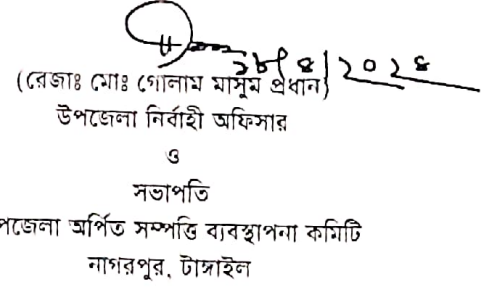 ১৮/৪/২০২৪
(রেজাঃ মোঃ গোলাম মাসুম প্রধান)
উপজেলা নির্বাহী অফিসার
ও
সভাপতি
পজেলা অর্পিত সম্পত্তি ব্যবস্থাপনা কমিটি
নাগরপুর, টাঙ্গাইল